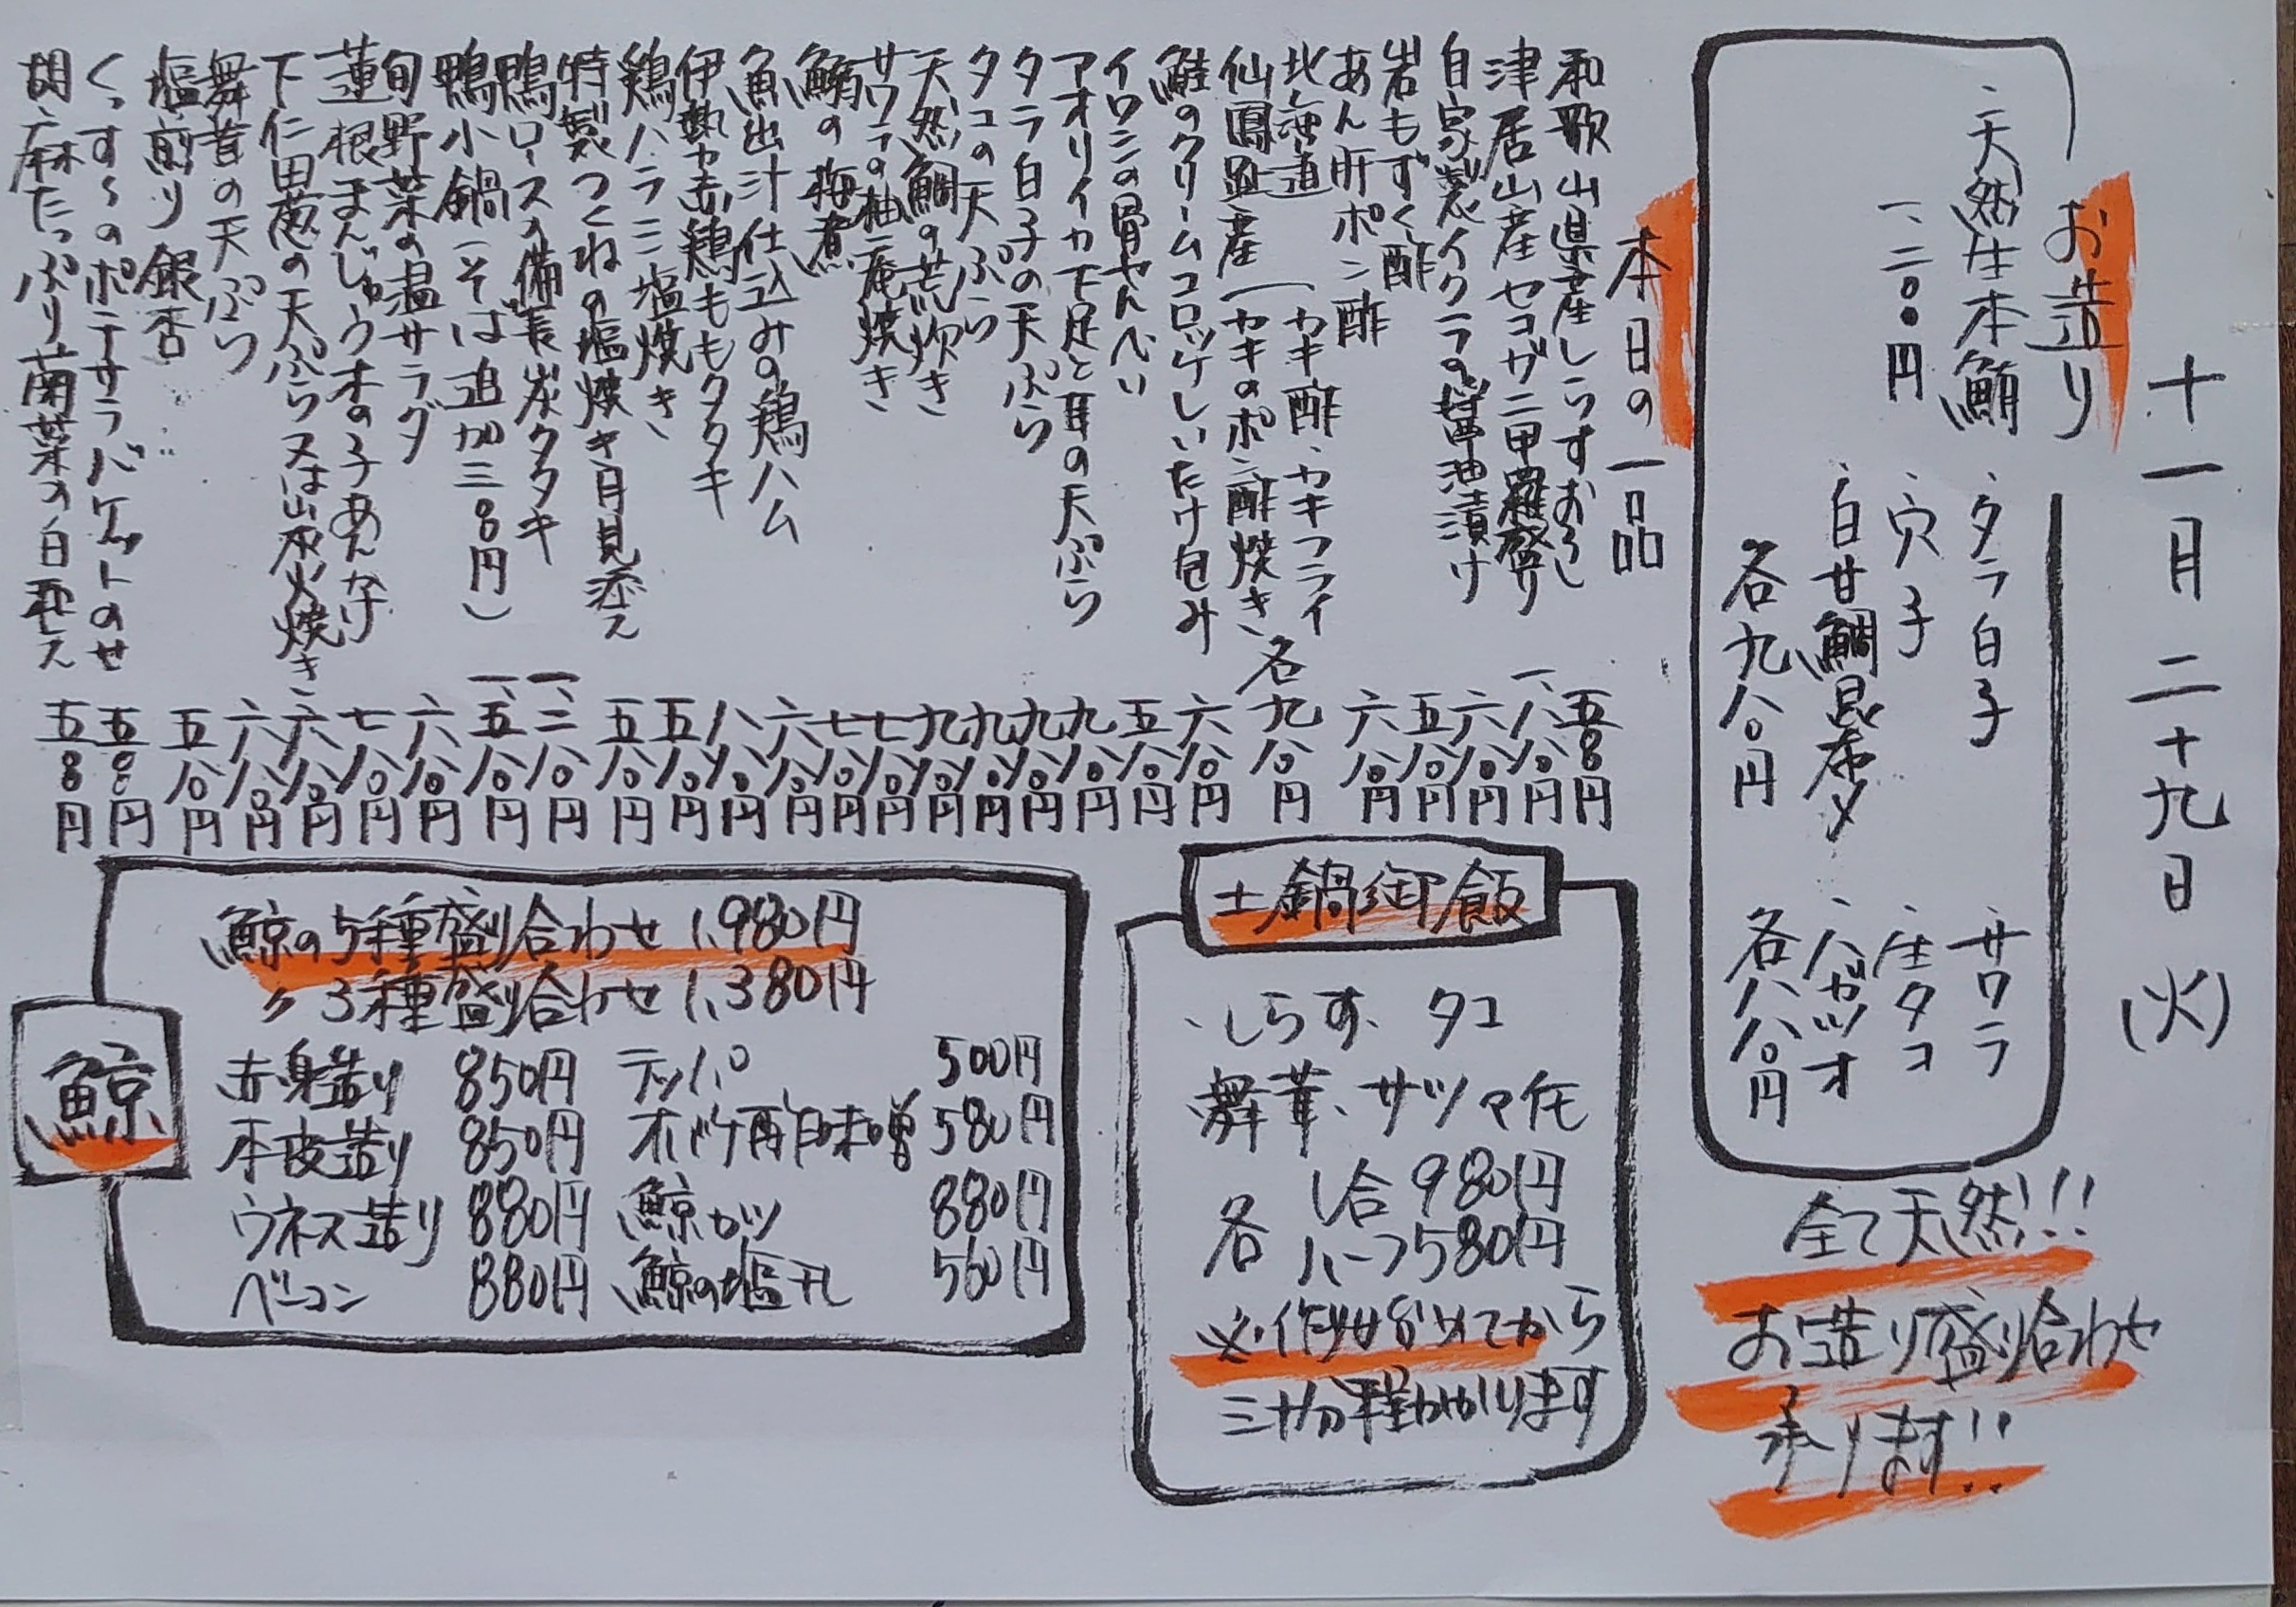 十一月二十九日(火)
お造り
・天然生本鮪
一、二〇〇円
・タラ白子
・穴子
・白甘鯛昆布〆
各九八〇円
・サワラ
・生タコ
・ハガツオ
各八八〇円
全て天然!!!
お造り盛り合わせ
承ります!!
本日の一品
和歌山県産しらすおろし 五八〇円
津居山産セコガニ甲羅盛り 一、八八〇円
自家製イクラの醤油漬け 六八〇円
岩もずく酢 五八〇円
あん肝ポン酢 六八〇円
北海道
仙鳳趾産(カキ酢・カキフライ
(カキのポン酢焼き、各九八〇円
鮭のクリームコロッケしいたけ包み 六八〇円
イワシの骨せんべい 五八〇円
アオリイカ下足と耳の天ぷら 九八〇円
タラ白子の天ぷら 九八〇円
タコの天ぷら 九八〇円
天然鯛の荒炊き 九八〇円
サワラの柚庵焼き 七八〇円
鰯の梅煮 七八〇円
魚出汁仕込みの鶏ハム 六八〇円
伊勢赤鶏ももタタキ 八八〇円
鶏ハラミ塩焼き 五八〇円
特製つくねの塩焼き月見添え 五八〇円
鴨ロースの備長炭タタキ 一、二八〇円
鴨小鍋(そば追加三〇〇円) 一、五八〇円
旬野菜の温サラダ 六八〇円
蓮根まんじゅう木の子あんかけ 七八〇円
下仁田葱の天ぷら又は炭火焼き 六八〇円
舞茸の天ぷら 六八〇円
塩煎り銀杏 五八〇円
くっすーのポテサラバケットのせ 五八〇円
胡麻たっぷり菊菜の白和え 五八〇円
土鍋御飯
・しらす、タコ
舞茸、サツマ芋
各 1合980円
ハーフ580円
※作り始めてから
三十分程かかります
鯨
鯨の5種盛り合わせ 1,980円
〃 3種盛り合わせ 1,380円
赤身造り 850円 テッポ 500円
本皮造り 850円 オバケ酢味噌 580円
ウネス造り 880円 鯨カツ 880円
ベーコン 880円 鯨の塩丸 560円